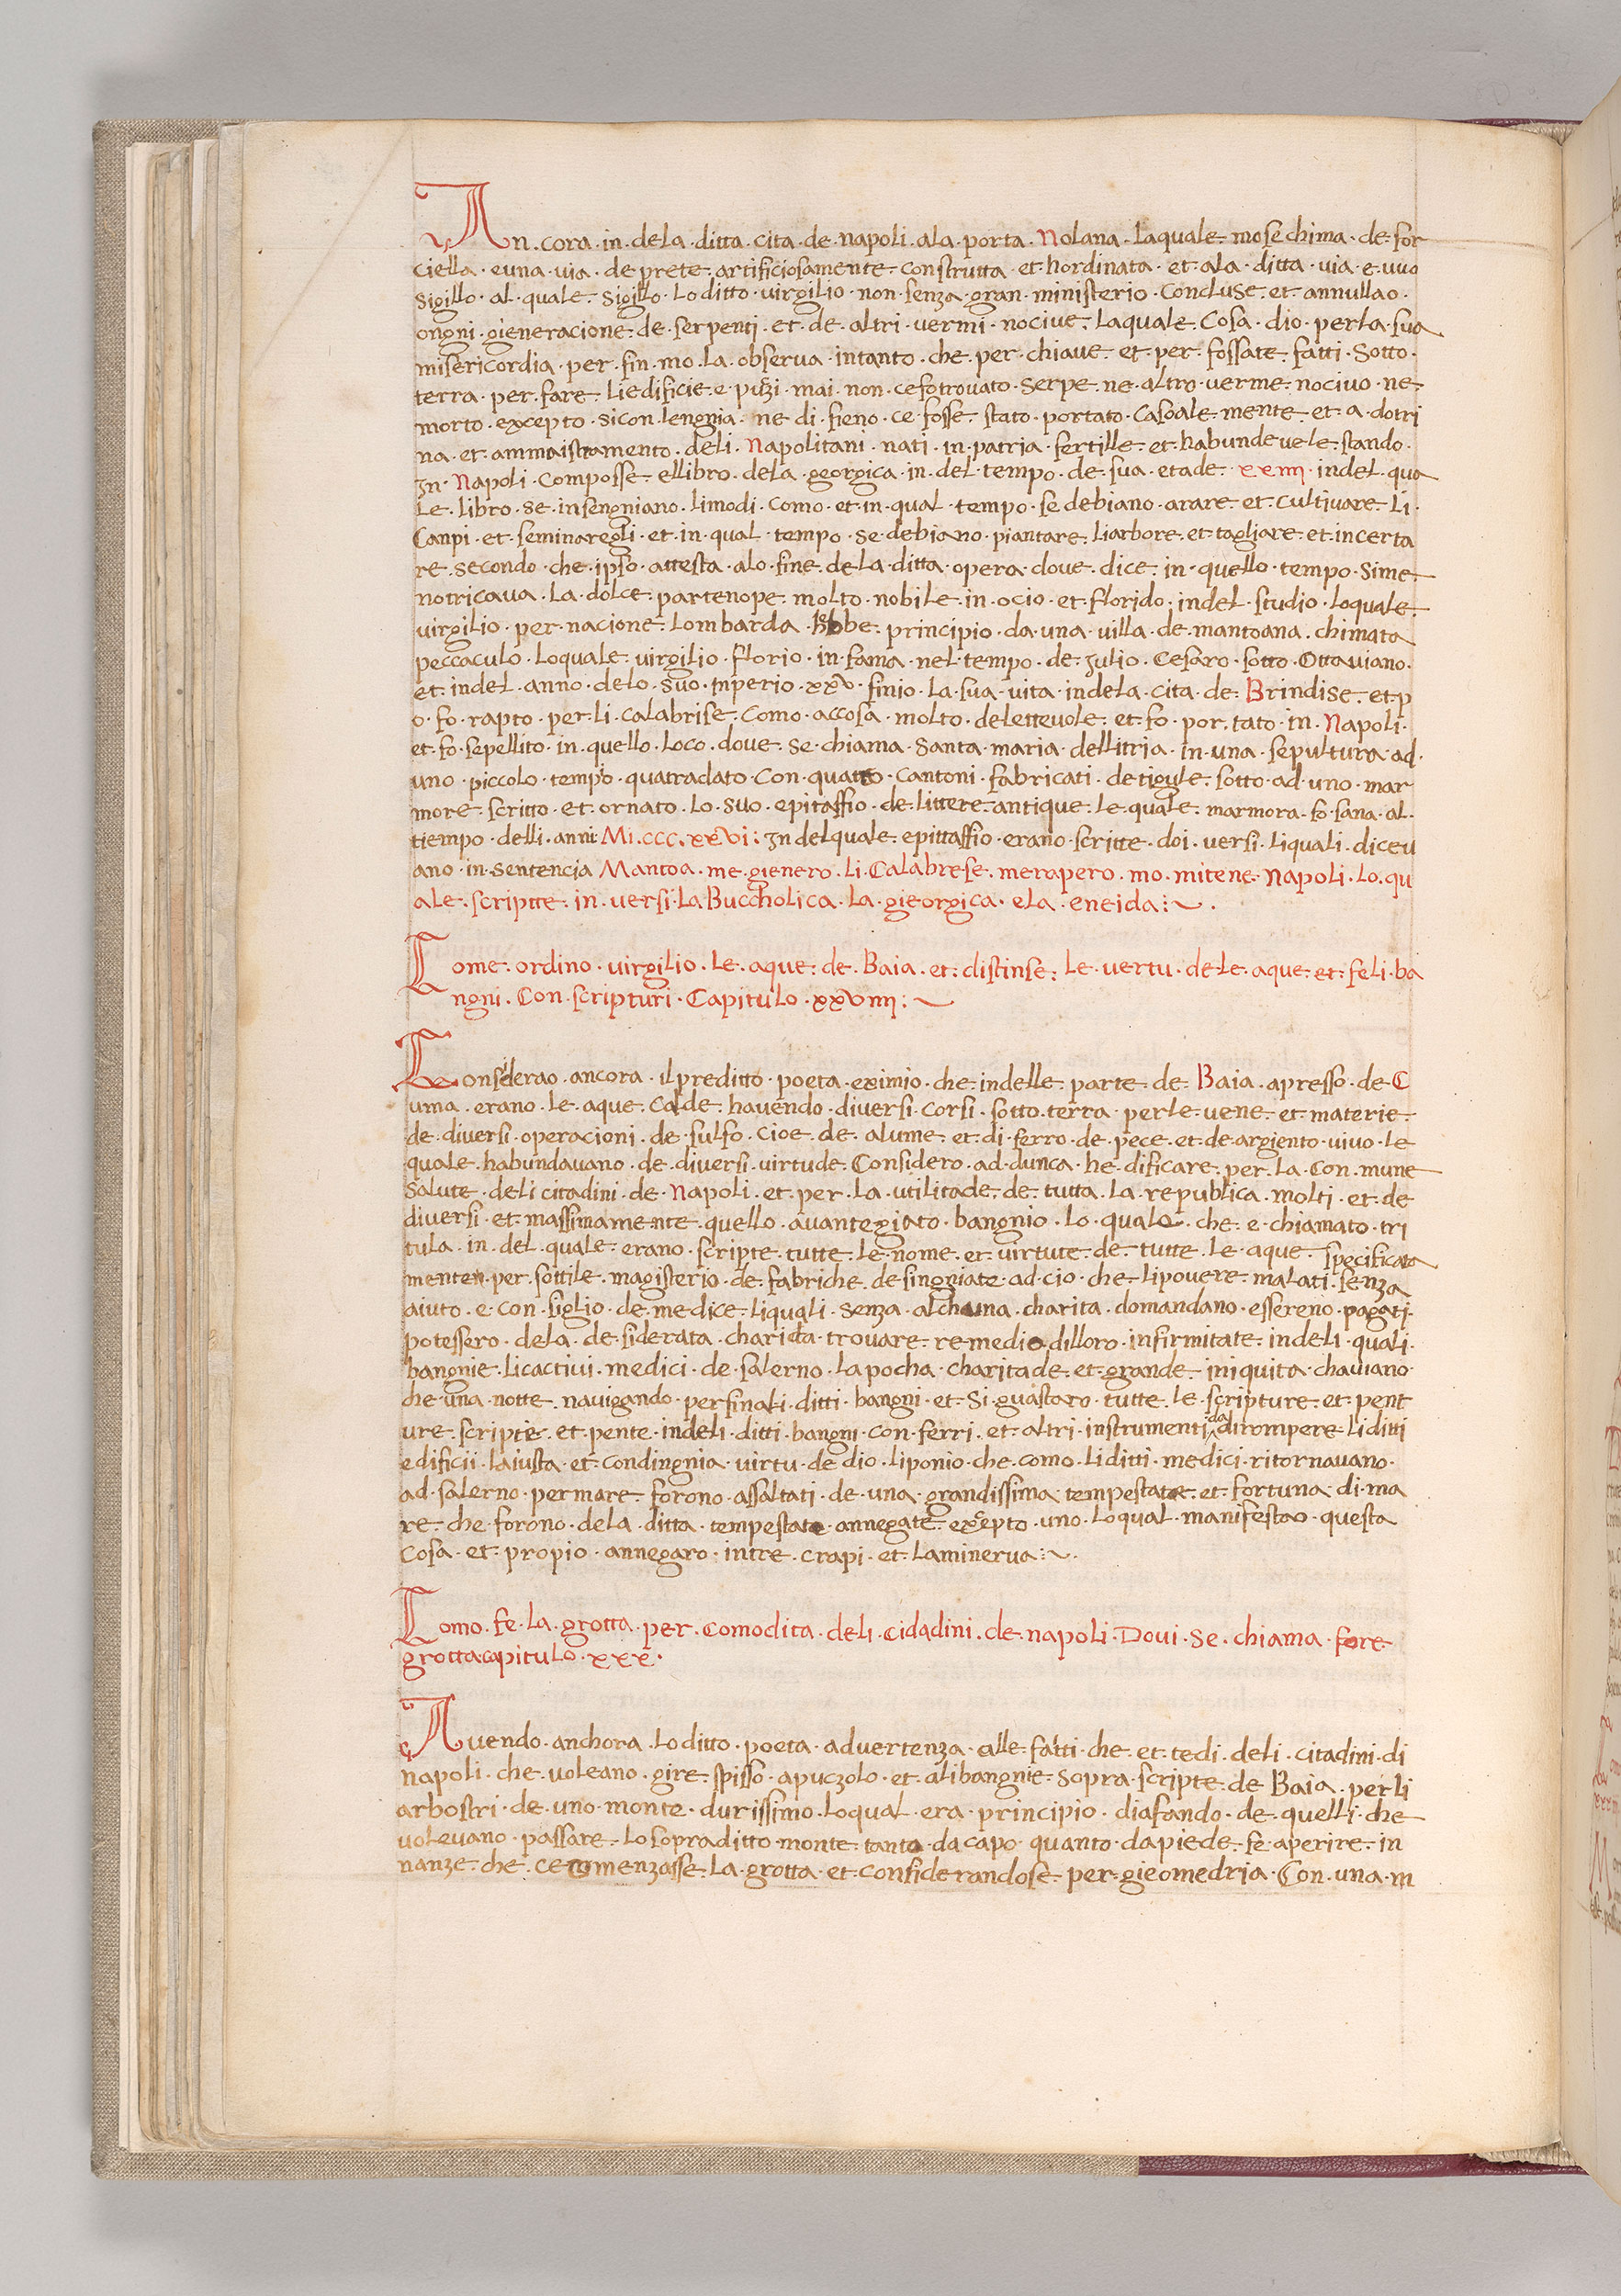 An.cora.in.dela.ditta.cita.de.napoli.ala.porta.Nolana.laquale.mose chima.de.for
ciella.euna.via.de prete.artificiosamente.construtta.et.hordinata.et.ala.ditta.via.e.uno
sigillo.al.quale.sigillo.lo ditto.virgilio.non.senza.gran.ministerio.concluse.et.annullao.
ongni.gieneracione.de.serpenti.et.de.altri.vermi.nocive.laquale.Cosa.dio.perla.sua
misericordia.per.fin.mo.la.observa.intanto.che.per.chiave.et.per.fossate.fatti.sotto.
terra.per.fare.liedificie.e puzi.mai.non.cefotrovato.serpe.ne.altro.verme.nocivo.ne.
morto.excepto.sicon.lengnia.ne di.fieno.ce fosse.stato.portato.Casoale.mente.et.a.dotri
na.et.ammaistramento.deli.Napolitani.nati.in.patria.fertille.et.habundevele.stando.
In.Napoli.Composse.ellibro.dela.georgica.in.del.tempo.de.sua.etade.xxiiii.indel.qua
le.libro.se.insengniano.limodi.como.et.in.qual.tempo.se debiano.arare.et.cultivare.li.
Canpi.et.seminaregli.et.in.qual.tempo.se.debiano.piantare.liarbore.et.tagliare.et.incerta
re.secondo.che.ipso.attesta.alo.fine.dela.ditta.opera.dove.dice.in.quello.tempo.sime.
notricava.la.dolce.partenope.molto.nobile.in.ocio.et.florido.indel.studio.loquale.
virgilio.per.nacione.lombarda.hebbe.principio.da.una.villa.de.mantoana.chimata
peccaculo.loquale.virgilio.florio.in.fama.nel.tempo.de.Julio.Cesaro.sotto.Ottaviano.
et.indel.anno.delo.suo.inperio.xxv.finio.la.sua.vita.indela.cita.de.Brindise.et.p
o.fo.rapto.per.li.calabrise.como.accosa.molto.delettevole.et.fo.por.tato.in.Napoli.
et.fo.sepellito.in.quello.loco.dove.se.chiama.santa.maria.dellitria.in.una.sepultura.ad.
uno.piccolo.tempo.quatradato.con.quatto.cantoni.fabricati.de tigule.sotto.ad.uno.mar
more.scritto.et.ornato.lo.suo.epitaffio.de.littere.antique.le.quale.marmora.fo.sana.al.
tiempo.delli.anni.Mi.ccc.xxvi:In delquale.epittaffio.erano.scritte.doi.versi.liquali.diceu
ano.in.sentencia Mantoa.me.gienero.li.Calabrese.merapero.mo.mitene.Napoli.lo.qu
ale.scriptte.in.versi.la Buccholica.la.gieorgica.ela.eneida:~.
Come.ordino.virgilio.le.aque.de.Baia.et.distinse.le.vertu.dele.aque.et.feli.ba
ngni.Con.scripturi.Capitulo.xxviiii:~
Considerao.ancora.il preditto.poeta.eximio.che.indelle.parte.de.Baia.apresso.de C
uma.erano.le.aque.calde.havendo.diversi.corsi.sotto.terra.perle.vene.et.materie.
de.diversi.operacioni.de.sulfo.cioe.de.alume.et.di.ferro.de.pece.et.de.argiento.vivo.le
quale.habundavano.de.diversi.virtude.Considero.ad.dunca.he.dificare.per.la.con.mune
salute.deli citadini.de.Napoli.et.per.la.utilitade.de.tutta.la.republica.molti.et.de
diversi.et.massimamente.quello.avantegiato.bangnio.lo.quale.che.e.chiamato.tri
tula.in.del.quale.erano.scripte.tutte.le.nome.et.virtute.de.tutte.le.aque.specificata
mente.per.sottile.magisterio.de.fabriche.desingniate.ad.cio.che.lipovere.malati.senza
aiuto.e.con.siglio.de.medice.liquali.senza.alchuna.charita.domandano.essereno.pagati.
potessero.dela.de.siderata.charita.trovare.remedio dilloro.infirmitate.indeli.quali.
bangnie.licactivi.medici.de.salerno.la pocha.charitade.et.grande.iniquita.chaviano.
che una.notte.navigando.per finali.ditti.bangni.et.si.guastaro.tutte.le.scripture.et.pent
ure.scripte.et.pente.indeli.ditti.bangni.con.ferri.et.altri.instrumenti da dirompere.li ditti
edificii.la iusta.et.condingnia.virtu.de dio.liponio.che.como.li ditti.medici.ritornavano.
ad.salerno.per mare.forono.assaltati.de.una.grandissima.tempestate.et.fortuna.di.ma
re.che.forono.dela.ditta.tempestate.annegate.excepto.uno.loqual.manifestao.questa
Cosa.et.propio.annegaro.intre.crapi.et.laminerva:~.
Como.fe.la.grotta.per.comodita.deli.cidadini.de.napoli.Dovi.se.chiama.fore
grotta capitulo.xxx.
Avendo.anchora.lo ditto.poeta.advertenza.alle.fatti.che.et.tedi.deli.citadini.di
napoli.che.voleano.gire.spisso.apuczolo.et.alibangnie.sopra.scripte.de Baia.per li
arbostri.de.uno.monte.durissimo.loqual.era.principio.diafando.de.quelli.che
volevano.passare.lo sopraditto.monte.tanto.dacapo.quanto.dapiede.fe.aperire.in
nanze.che.ce comenzasse.la.grotta.et.considerandose.per.gieomedria.Con.una.m